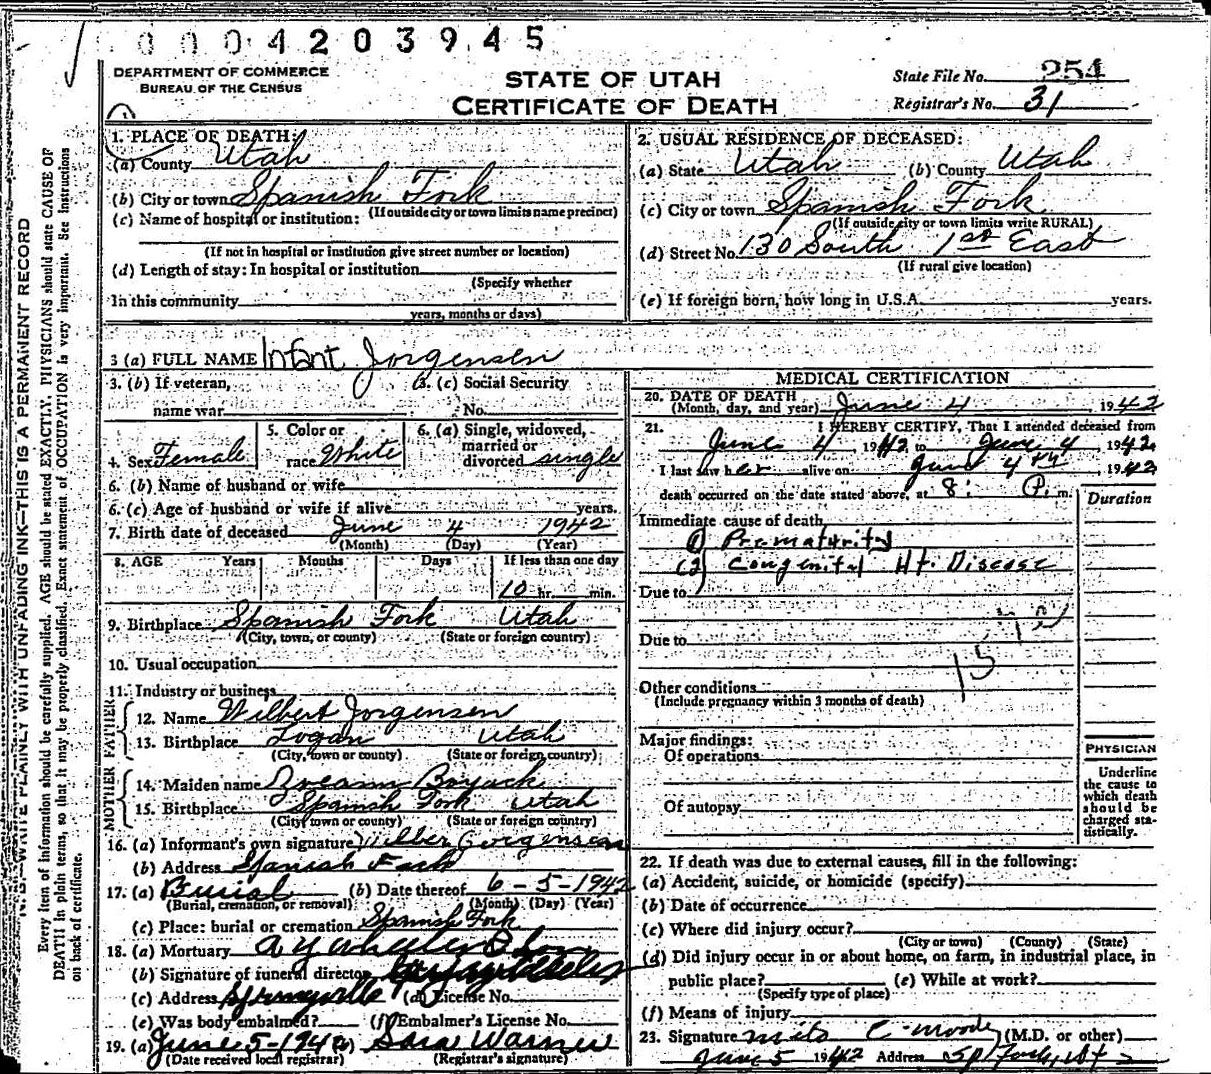 0004203945
DEPARTMENT OF COMMERCE
BUREAU OF THE CENSUS
STATE OF UTAH
CERTIFICATE OF DEATH
State File No. 254
Registrar's No. 31
1. PLACE OF DEATH:
(a) County Utah
(b) City or town Spanish Fork
(If outside city or town limits name precinct)
(c) Name of hospital or institution:
(If not in hospital or institution give street number or location)
(d) Length of stay: In hospital or institution
(Specify whether
In this community
years, months or days)
2. USUAL RESIDENCE OF DECEASED:
(a) State Utah (b) County Utah
(c) City or town Spanish Fork
(If outside city or town limits write RURAL)
(d) Street No. 130 South 1st East
(If rural give location)
(e) If foreign born, how long in U.S.A. years.
3 (a) FULL NAME Infant Jorgensen
3. (b) If veteran,
name war
3. (c) Social Security
No.
4. Sex Female
5. Color or
race White
6. (a) Single, widowed,
married or
divorced single
6. (b) Name of husband or wife
6. (c) Age of husband or wife if alive years.
7. Birth date of deceased June 4 1942
(Month) (Day) (Year)
8. AGE Years Months Days If less than one day
10 hr. min.
9. Birthplace Spanish Fork Utah
(City, town, or county) (State or foreign country)
10. Usual occupation
11. Industry or business
FATHER
12. Name Wilbert Jorgensen
13. Birthplace Logan Utah
(City, town or county) (State or foreign country)
MOTHER
14. Maiden name Boyack
15. Birthplace Spanish Fork Utah
(City, town or county) (State or foreign country)
16. (a) Informant's own signature Wilber Jorgensen
(b) Address Spanish Fork
17. (a) Burial (b) Date thereof 6-5-1942
(Burial, cremation, or removal) (Month) (Day) (Year)
(c) Place: burial or cremation Spanish Fork
18. (a) Mortuary
(b) Signature of funeral director
(c) Address Springville (d) License No.
(e) Was body embalmed? (f) Embalmer's License No.
19. (a) June 5-1942 (b) Sara Warner
(Date received local registrar) (Registrar's signature)
MEDICAL CERTIFICATION
20. DATE OF DEATH
(Month, day, and year) June 4, 1942
21. I HEREBY CERTIFY, That I attended deceased from
June 4, 1942 to June 4, 1942
I last saw her alive on June 4th, 1942
death occurred on the date stated above, at 8: P. m.
Duration
Immediate cause of death
(1) Prematurity
(2) Congenital Ht. Disease
Due to
Due to
15
Other conditions
(Include pregnancy within 3 months of death)
Major findings:
Of operations
Of autopsy
PHYSICIAN
Underline
the cause to
which death
should be
charged sta-
tistically.
22. If death was due to external causes, fill in the following:
(a) Accident, suicide, or homicide (specify)
(b) Date of occurrence
(c) Where did injury occur?
(City or town) (County) (State)
(d) Did injury occur in or about home, on farm, in industrial place, in
public place? (e) While at work?
(Specify type of place)
(f) Means of injury
23. Signature C. Moody (M.D. or other)
June 5 1942 Address Sp Fork, Ut
N.B.—WRITE PLAINLY WITH UNFADING INK—THIS IS A PERMANENT RECORD
Every item of information should be carefully supplied. AGE should be stated EXACTLY. PHYSICIANS should state CAUSE OF
DEATH in plain terms, so that it may be properly classified. Exact statement of OCCUPATION is very important. See instructions
on back of certificate.